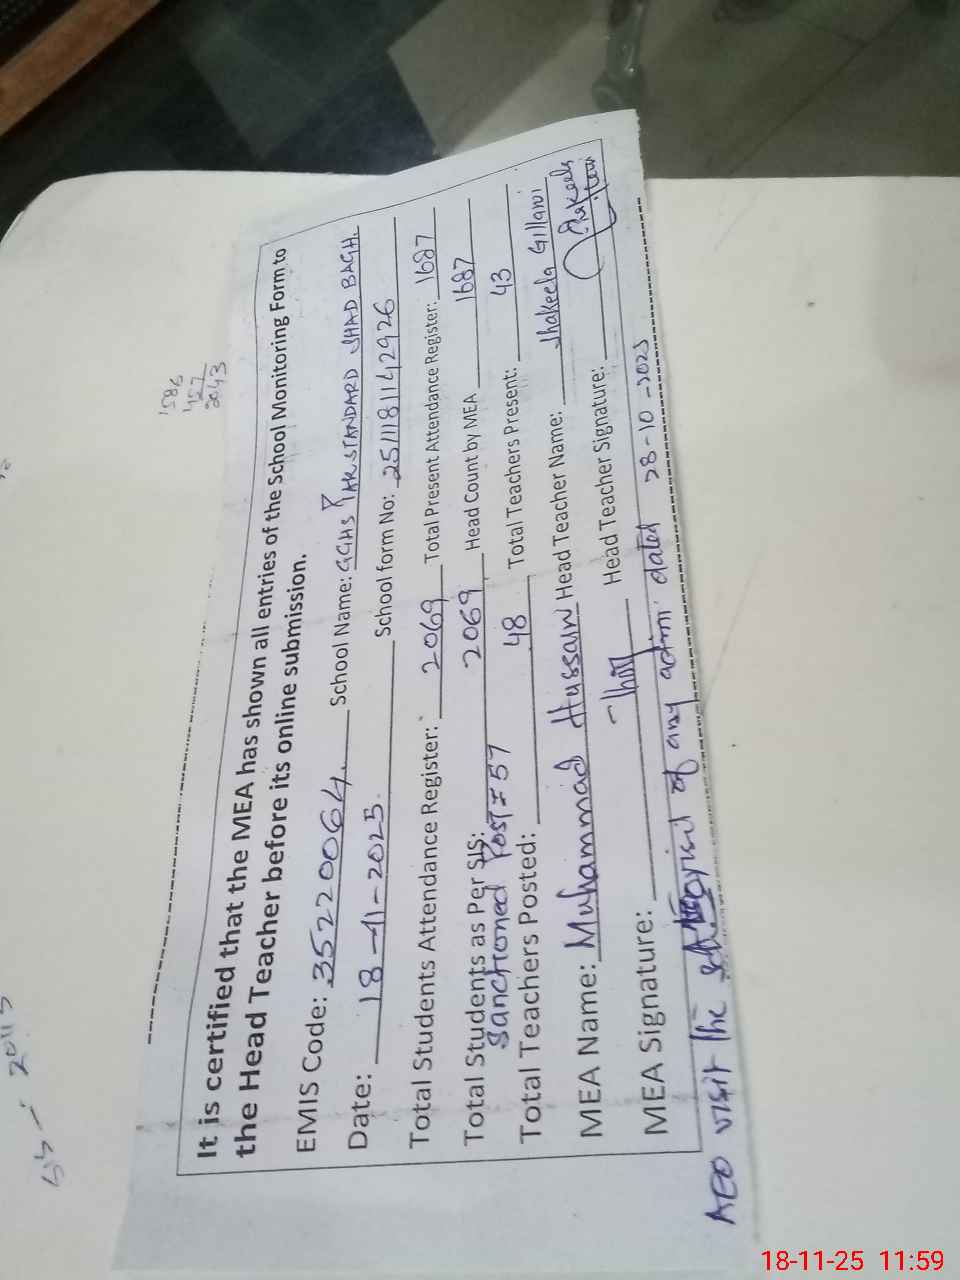 It is certified that the MEA has shown all entries of the School Monitoring Form to
the Head Teacher before its online submission.
EMIS Code: 35220064. School Name: GGHS PAK STANDARD SHAD BAGH.
Date: 18-11-2025. School form No: 2511181142926
Total Students Attendance Register: 2069 Total Present Attendance Register: 1687
Total Students as Per SIS: 2069 Head Count by MEA 1687
Sanctioned Post = 57
Total Teachers Posted: 48 Total Teachers Present: 43
MEA Name: Muhammad Hussain Head Teacher Name: Shakeela Gillani
MEA Signature: Head Teacher Signature: Shakeela
AEO visit the of any admn dated 28-10-2025
1586
457
2043
18-11-25 11:59